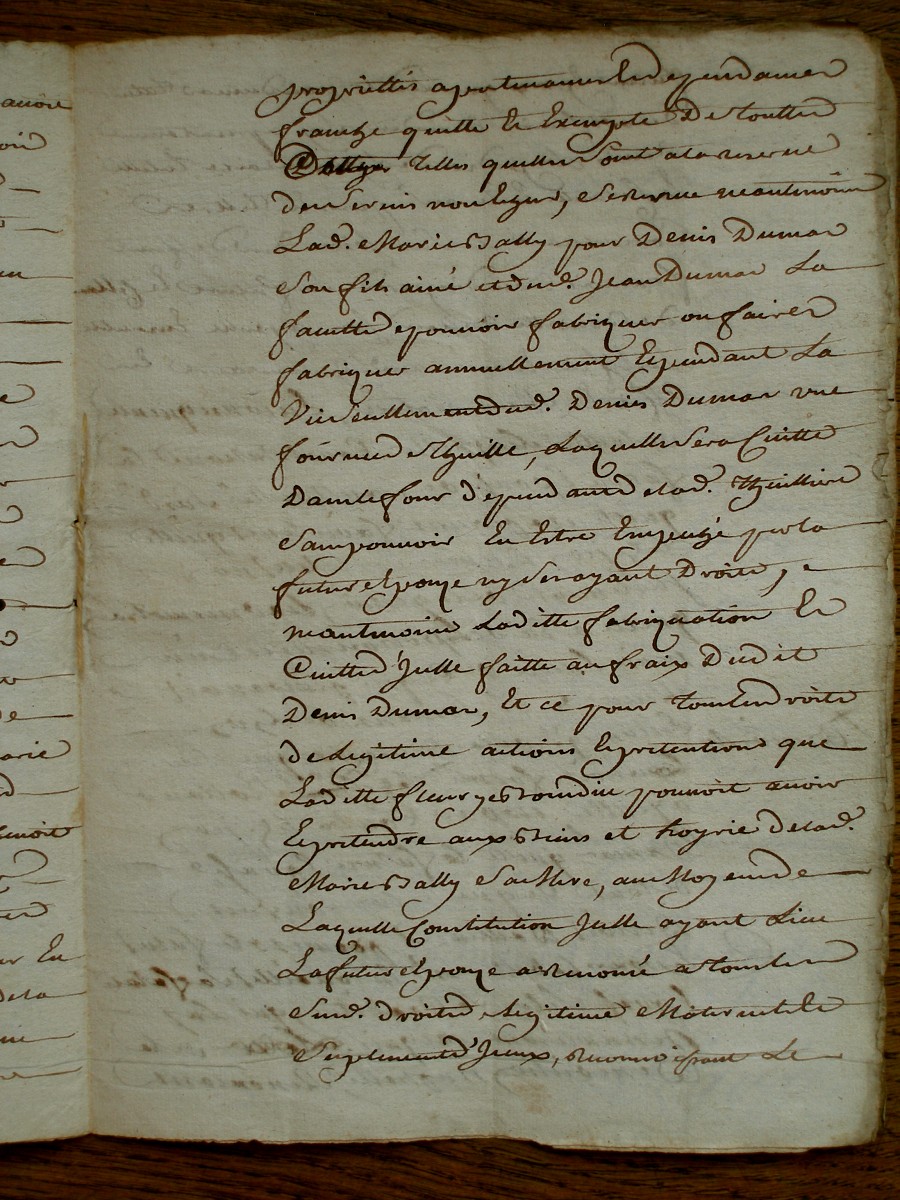 proprietés apartenances Et dependances
franche quitte Et Exempte De toutte
telles quelles sont a la reserve
des servis nonlegues, se reserve neantmoins
Lad.e Marie Bally pour Denis Dumas
son fils ainé et dud.t Jean Dumas La
faculte de pouvoir fabriquer ou faires
fabriquer annuellement Et pendant La
Vie seullement dud.t Denis Dumas une
fournee de Thuille, Laquelle sera Cuitte
Dans le four dependant de lad.e Thuilliere
sans pouvoir En Estre Empeché par la
future Epouze ny ses ayant Droits,
neantmoins Laditte fabriquation Et
Cuitte d'Jcelle faitte au fraix Dudit
Denis Dumas, Et ce pour tous les droits
de Legitime actions Et pretentions que
Laditte fleurye pouvoit avoir
Et pretendre aux Biens et hoyrie de lad.e
Marie Bally sa Mere, au Moyen de
Laquelle Constitution Jcelle ayant Lieu
La future Epouze a Renoncé a tous les
susd.ts droits, Legitime Maternelle
suplement d'Jceux, reconnoissant Le
avoir
oir
un
arie
Benoit
er En
de la